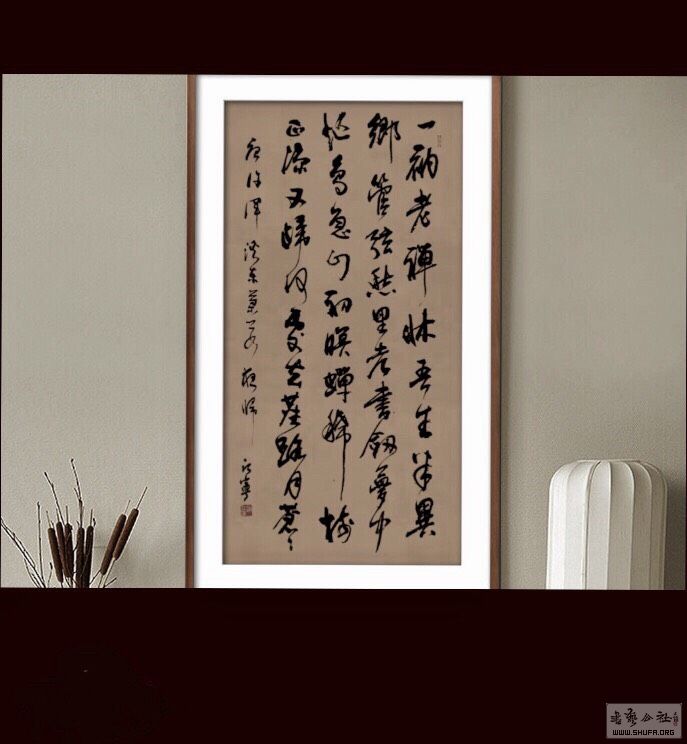 一衲老禪牀吾生半異
鄉管弦愁里老書劔夢中
忙鳥急山初暝蟬稀樹
正涼又歸何處去塵路月蒼〻
唐許渾洛東蘭若歸
書藝公社
WWW.SHUFA.ORG